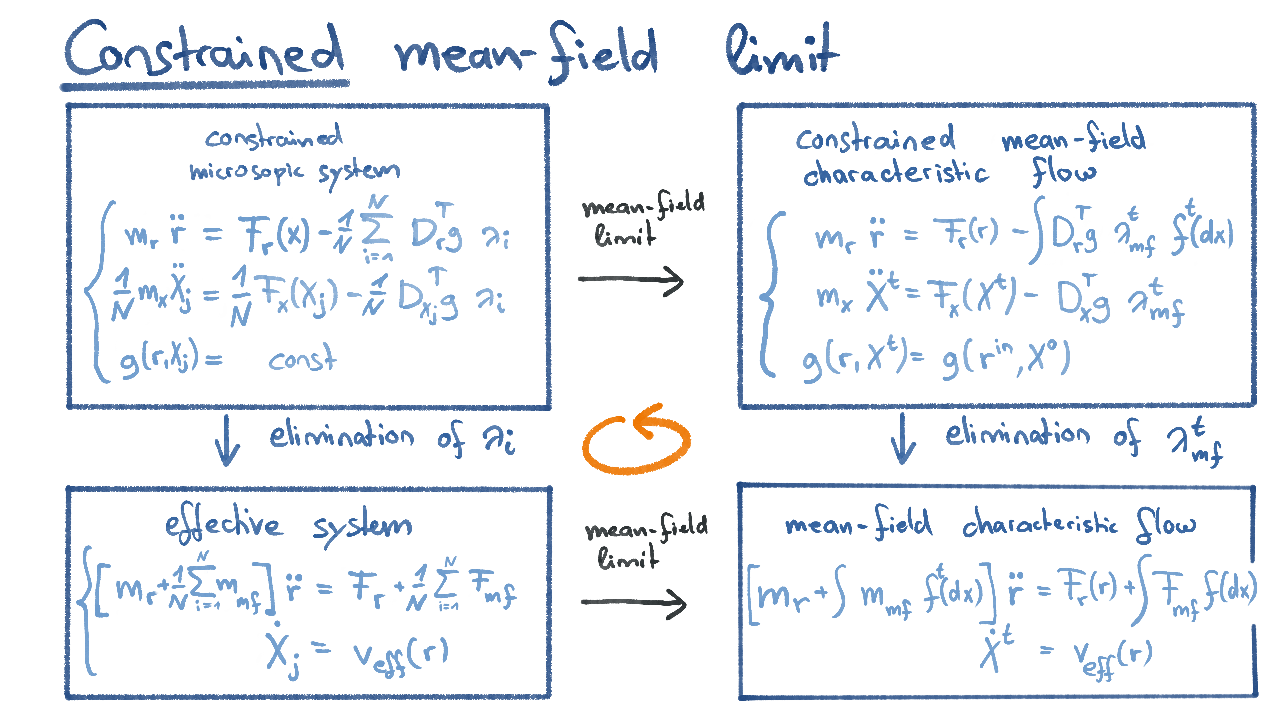 Constrained mean-field limit
constrained
microsopic system
m_r r̈ = F_r(x) - 1/N ∑_{i=1}^N D_r^T g λ_i
1/N m_x Ẍ_j = 1/N F_x(X_j) - 1/N D_{x_j}^T g λ_i
g(r,X_j) = const
mean-field
limit
constrained mean-field
characteristic flow
m_r r̈ = F_r(r) - ∫ D_r^T g λ_{mf}^t f^t(dx)
m_x Ẍ^t = F_x(X^t) - D_x^T g λ_{mf}^t
g(r, X^t) = g(r^{in}, X^0)
elimination of λ_i
elimination of λ_{mf}^t
effective system
[m_r + 1/N ∑_{i=1}^N m_{mf}] r̈ = F_r + 1/N ∑_{i=1}^N F_{mf}
Ẋ_j = v_{eff}(r)
mean-field
limit
mean-field characteristic flow
[m_r + ∫ m_{mf} f^t(dx)] r̈ = F_r(r) + ∫ F_{mf} f(dx)
Ẋ^t = v_{eff}(r)